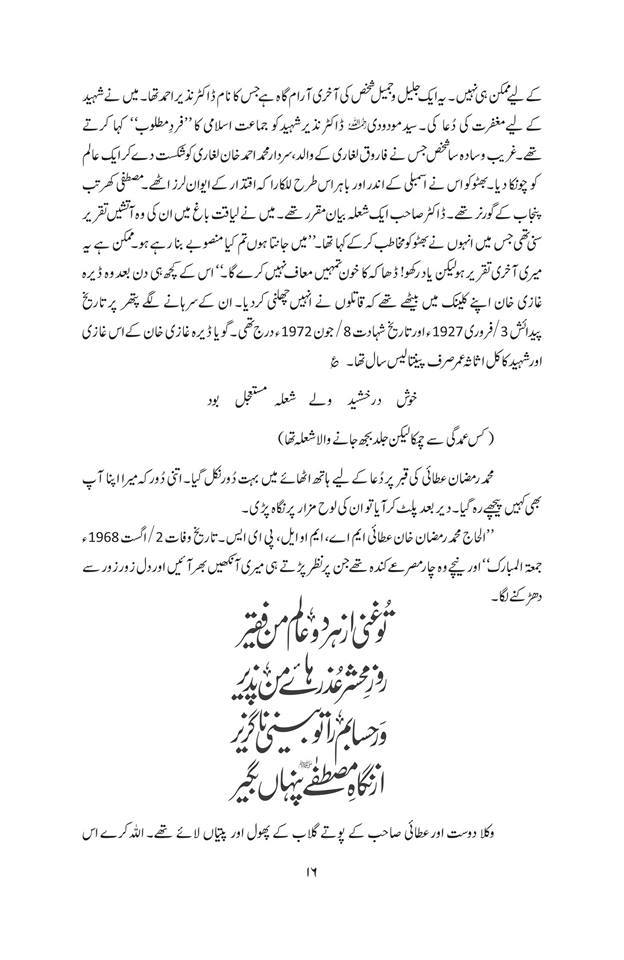 کے لیے ممکن ہی نہیں۔ یہ ایک جلیل و جمیل شخص کی آخری آرام گاہ ہے جس کا نام ڈاکٹر نذیر احمد تھا۔ میں نے شہید
کے لیے مغفرت کی دُعا کی۔ سید مودودی رحمۃ اللہ علیہ ڈاکٹر نذیر شہید کو جماعت اسلامی کا ’’فردِ مطلوب‘‘ کہا کرتے
تھے۔ غریب و سادہ سا شخص جس نے فاروق لغاری کے والد، سردار محمد احمد خان لغاری کو شکست دے کر ایک عالم
کو چونکا دیا۔ بھٹو کو اس نے اسمبلی کے اندر اور باہر اس طرح للکارا کہ اقتدار کے ایوان لرز اٹھے۔ مصطفی کھر تب
پنجاب کے گورنر تھے۔ ڈاکٹر صاحب ایک شعلہ بیان مقرر تھے۔ میں نے لیاقت باغ میں ان کی وہ آتشیں تقریر
سنی تھی جس میں انہوں نے بھٹو کو مخاطب کر کے کہا تھا۔ ’’میں جانتا ہوں تم کیا منصوبے بنا رہے ہو۔ ممکن ہے یہ
میری آخری تقریر ہو لیکن یاد رکھو! ڈھاکہ کا خون تمہیں معاف نہیں کرے گا۔‘‘ اس کے کچھ ہی دن بعد وہ ڈیرہ
غازی خان اپنے کلینک میں بیٹھے تھے کہ قاتلوں نے انہیں چھلنی کر دیا۔ ان کے سرہانے لگے پتھر پر تاریخ
پیدائش 3/فروری 1927ء اور تاریخ شہادت 8/جون 1972ء درج تھی۔ گویا ڈیرہ غازی خان کے اس غازی
اور شہید کا کل اثاثہ عمر صرف پینتالیس سال تھا۔ ؏
خوش درخشید ولے شعلہ مستعجل بود
(کس عمدگی سے چمکا لیکن جلد بجھ جانے والا شعلہ تھا)
محمد رمضان عطائی کی قبر پر دُعا کے لیے ہاتھ اٹھائے میں بہت دُور نکل گیا۔ اتنی دُور کہ میرا اپنا آپ
بھی کہیں پیچھے رہ گیا۔ دیر بعد پلٹ کر آیا تو ان کی لوح مزار پر نگاہ پڑی۔
’’الحاج محمد رمضان خان عطائی ایم اے، ایم او ایل، پی ای ایس۔ تاریخ وفات 2/اگست 1968ء
جمعۃ المبارک‘‘ اور نیچے وہ چار مصرعے کندہ تھے جن پر نظر پڑتے ہی میری آنکھیں بھر آئیں اور دل زور زور سے
دھڑکنے لگا۔
تُو غنی از ہر دو عالم من فقیر
روزِ محشر عُذر ہائے من پذیر
وَر حسابم را تو بینی ناگزیر
از نگاہِ مصطفےٰ ﷺ پنہاں بگیر
وکلا دوست اور عطائی صاحب کے پوتے گلاب کے پھول اور پتیاں لائے تھے۔ اللہ کرے اس
۱۶